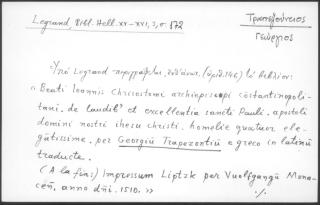 Legrand, Bibl. Hell. XV-XVI, 3, σ. 172
Τραπεζούντιος
Γεώργιος
«Υπό Legrand περιγράφεται, ἐνθ' ἀνωτ. (ἀριθ. 146) τό βιβλίον:
« Beati Ioannis Chrisostomi archiepiscopi cōstantinopoli-
tani. de laudibꝰ et excellentia sancti Pauli. apostoli
domini nostri ihesu christi. homelie quatuor ele-
gātissime. per Georgiū Trapezontiū e greco in latinū
traducte.
(A la fin:) Impressum Liptzk per Vuolfgangū Mona-
ceñ, anno dñi. 1510. »
·/.